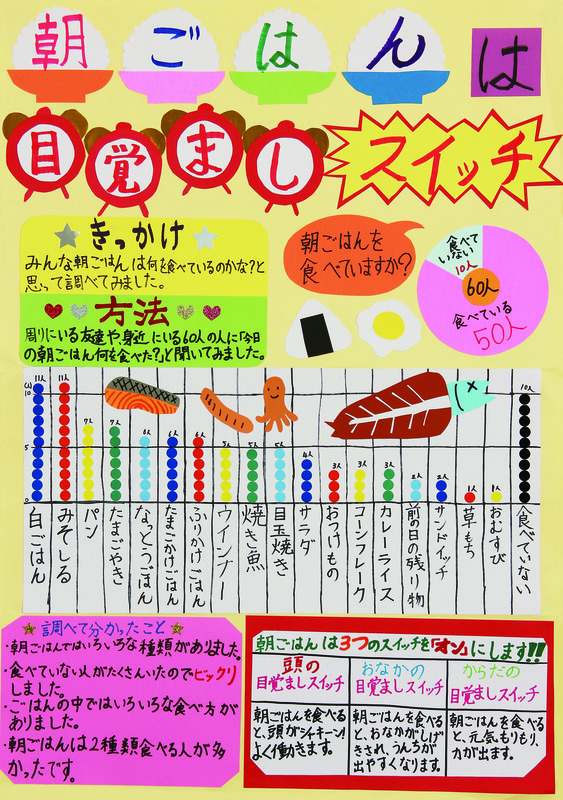 朝ごはんは
目覚ましスイッチ
きっかけ
みんな朝ごはんは何を食べているのかな?と
思って調べてみました。
方法
周りにいる友達や身近にいる60人の人に「今日
の朝ごはん何を食べた?」と聞いてみました。
朝ごはんを
食べていますか?
食べて
いない
10人
60人
食べている
50人
(人)
10
5
0
11人
11人
7人
7人
6人
6人
6人
5人
5人
5人
4人
3人
3人
3人
2人
2人
1人
1人
10人
白ごはん
みそしる
パン
たまごやき
なっとうごはん
たまごかけごはん
ふりかけごはん
ウインナー
焼き魚
目玉焼き
サラダ
おつけもの
コーンフレーク
カレーライス
前の日の残り物
サンドイッチ
草もち
おむすび
食べていない
調べて分かったこと
・朝ごはんではいろいろな種類がありました。
・食べていない人がたくさんいたのでビックリ
しました。
・ごはんの中ではいろいろな食べ方が
ありました。
・朝ごはんは2種類食べる人が多
かったです。
朝ごはんは3つのスイッチを「オン」にします!!
頭の
目覚ましスイッチ
朝ごはんを食べる
と、頭がシャキーン!
よく働きます。
おなかの
目覚ましスイッチ
朝ごはんを食べる
と、おなかがしげ
きされ、うんちが
出やすくなります。
からだの
目覚ましスイッチ
朝ごはんを食べ
ると、元気もりもり、
力が出ます。